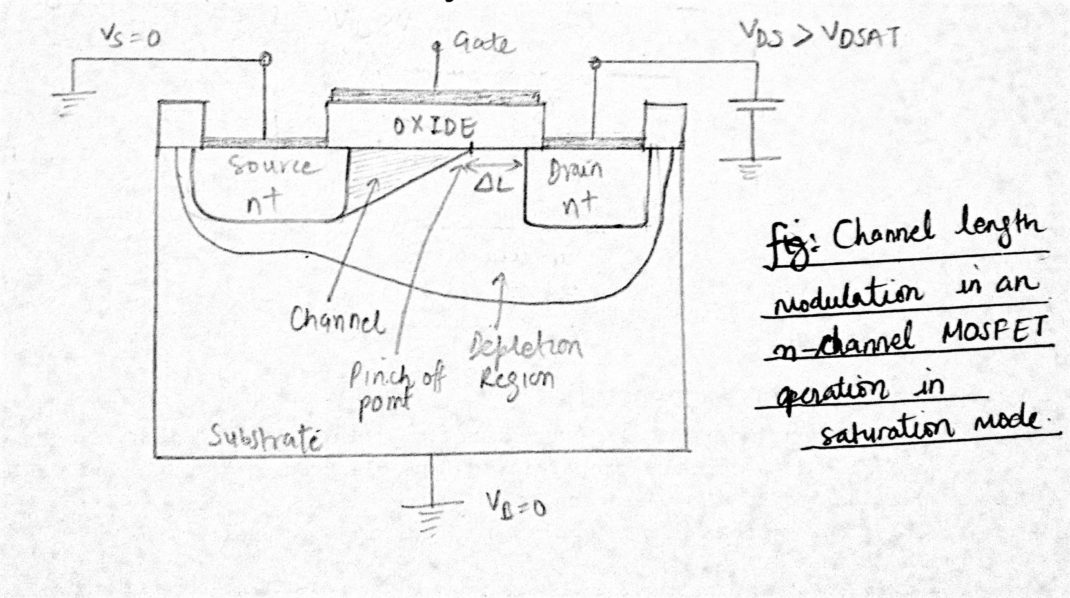 V_S = 0
Gate
V_DS > V_DSAT
OXIDE
Source
n+
ΔL
Drain
n+
Channel
Pinch off
point
Depletion
Region
Substrate
V_B = 0
fig: Channel length
modulation in an
n-channel MOSFET
operation in
saturation mode.